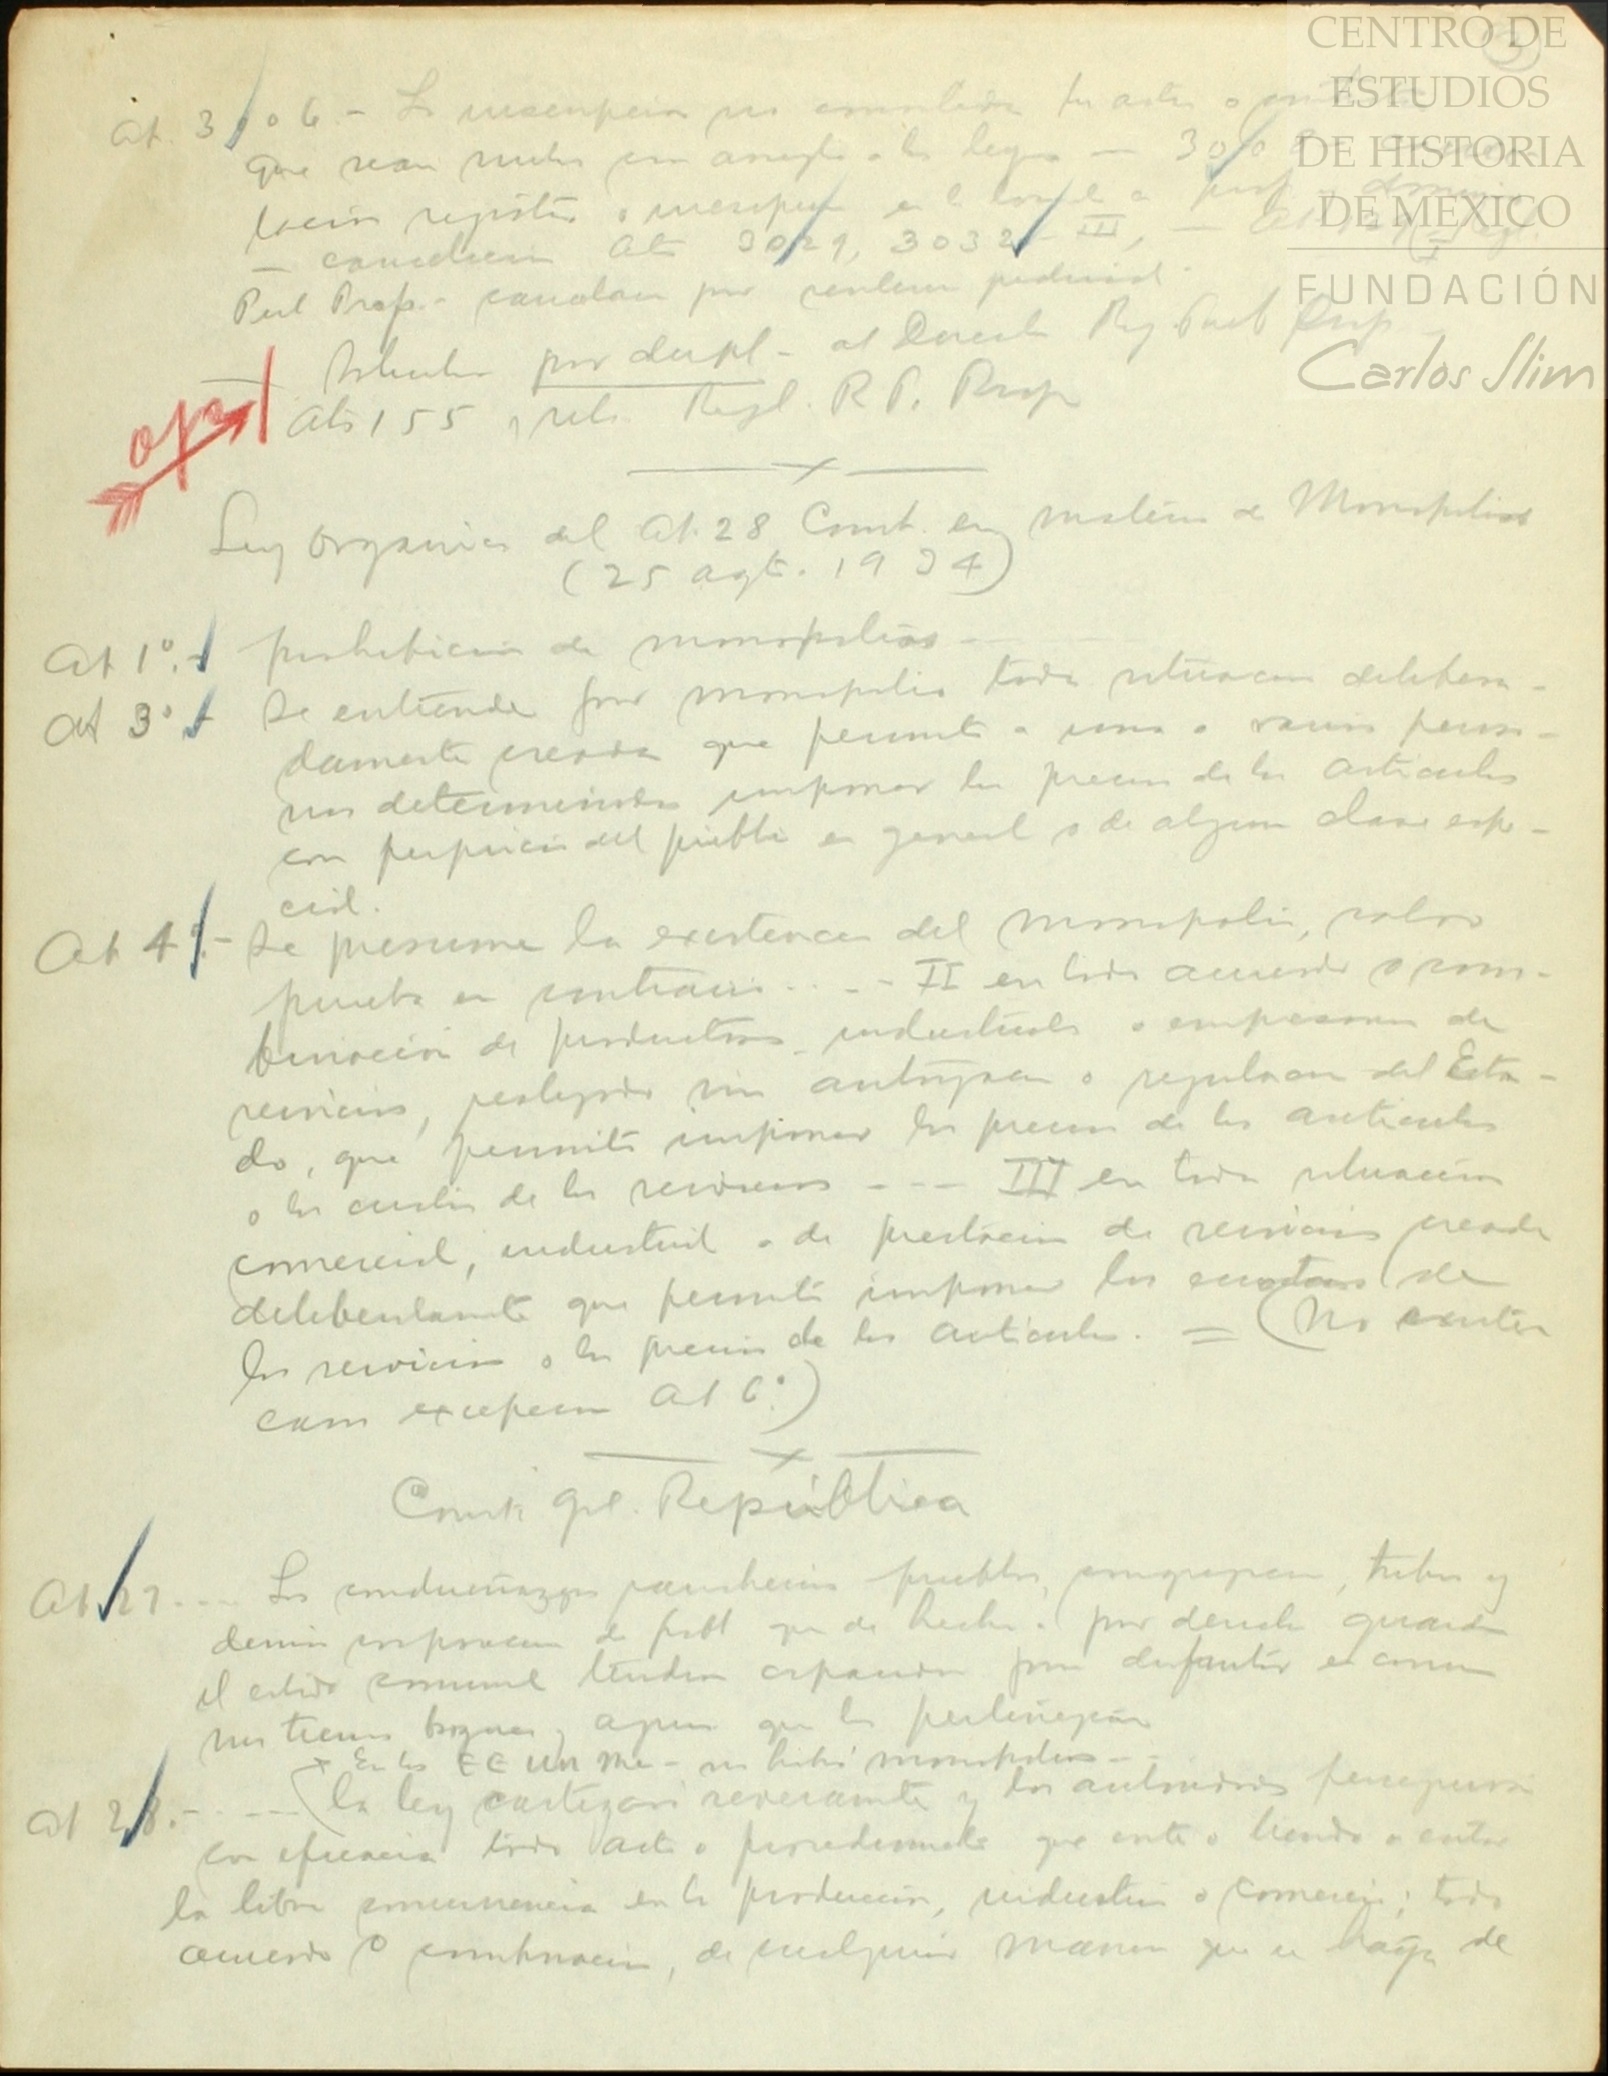 CENTRO DE
ESTUDIOS
DE HISTORIA
DE MÉXICO
FUNDACIÓN
Carlos Slim
Art. 3006.- La inscripción no convalida los actos o
que sean nulos con arreglo a las leyes — 3008
lación registro o inscripción
— cancelación Arts 3029, 3032 - III, —
Pub Prop.- cancelación por
Solicitar por dupl- al Direct Reg. Pub Prop
Arts 155 y rels. Regl. R P. Prop
Ley Orgánica del Art. 28 Const. en materia de Monopolios
(25 agt. 1934)
Art 1º.- prohibición de monopolios —
Art 3º - Se entiende por monopolio toda situación delibera-
damente creada que permite a una o varias perso-
nas determinadas imponer los precios de los artículos
con perjuicio del público en general o de alguna clase espe-
cial.
Art 4º.- Se presume la existencia del monopolio, salvo
prueba en contrario.... - II en todo acuerdo o com-
binación de productores industriales o empresarios de
servicios, realizado sin autorización o regulación del Esta-
do, que permita imponer los precios de los artículos
o las cuotas de los servicios - - - III en toda situación
comercial, industrial o de prestación de servicios creada
deliberadamente que permita imponer las cuotas de
los servicios o los precios de los artículos. = (No existen
casos excepción Art 6º.)
Const. Gral. República
Art 27.... Los condueñazgos rancherías pueblos, congregaciones, tribus y
demás corporaciones de pobl que de hecho o por derecho guarden
el estado comunal tendrán capacidad para disfrutar en común
sus tierras bosques y aguas que les pertenezcan
x En los EE UU Mex - no habrá monopolios - -
Art 28.- .... (la ley castigará severamente y las autoridades perseguirán
con eficacia todo acto o procedimiento que evite o tienda a evitar
la libre concurrencia en la producción, industria o comercio; todo
acuerdo o combinación, de cualquiera manera que se haga de